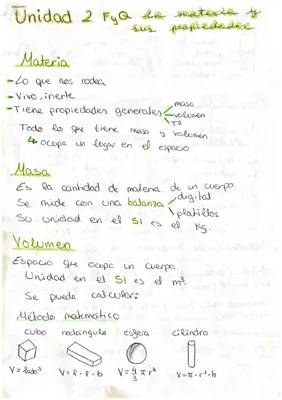 Unidad 2 FyQ La materia y
sus propiedades
Materia
- Lo que nos rodea
- Vivo, inerte
- Tiene propiedades generales
masa
volumen
Tª
Todo lo que tiene masa y volumen
↳ ocupa un lugar en el espacio
Masa
Es la cantidad de materia de un cuerpo.
Se mide con una balanza
digital
platillos
Su unidad en el SI es el Kg.
Volumen
Espacio que ocupa un cuerpo.
Unidad en el SI es el m³.
Se puede calcular:
Método matemático
cubo rectángulo esfera cilindro
V = lado³ V = l · l · b V = 4/3 π r³ V = π · r² · h